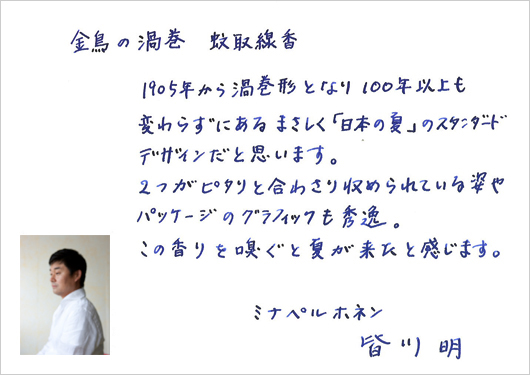 金鳥の渦巻 蚊取線香
1905年から渦巻形となり100年以上も
変わらずにあるまさしく「日本の夏」のスタンダード
デザインだと思います。
2つがピタリと合わさり収められている姿や
パッケージのグラフィックも秀逸。
この香りを嗅ぐと夏が来たと感じます。
ミナペルホネン
皆川 明